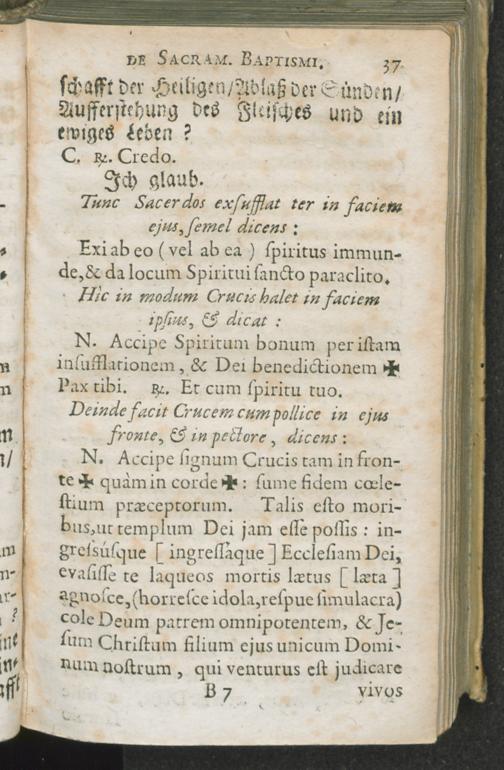 DE SACRAM. BAPTISMI. 37
ſchafft der Heiligen/Ablaß der Sünden/
Aufferſtehung des Fleiſches und ein
ewiges Leben ?
C. ℟. Credo.
Ich glaub.
Tunc Sacerdos exſufflat ter in faciem
ejus, ſemel dicens :
Exi ab eo ( vel ab ea ) ſpiritus immun-
de, & da locum Spiritui ſancto paraclito.
Hic in modum Crucis halet in faciem
ipſius, & dicat :
N. Accipe Spiritum bonum per iſtam
inſufflationem, & Dei benedictionem ✠
Pax tibi. ℟. Et cum ſpiritu tuo.
Deinde facit Crucem cum pollice in ejus
fronte, & in pectore, dicens :
N. Accipe ſignum Crucis tam in fron-
te ✠ quàm in corde ✠ : ſume fidem cœle-
ſtium præceptorum. Talis eſto mori-
bus, ut templum Dei jam eſſe poſſis : in-
greſsúſque [ ingreſſaque ] Eccleſiam Dei,
evaſiſſe te laqueos mortis lætus [ læta ]
agnoſce, (horreſce idola, reſpue ſimulacra)
cole Deum patrem omnipotentem, & Je-
ſum Chriſtum filium ejus unicum Domi-
num noſtrum, qui venturus eſt judicare
B 7 vivos